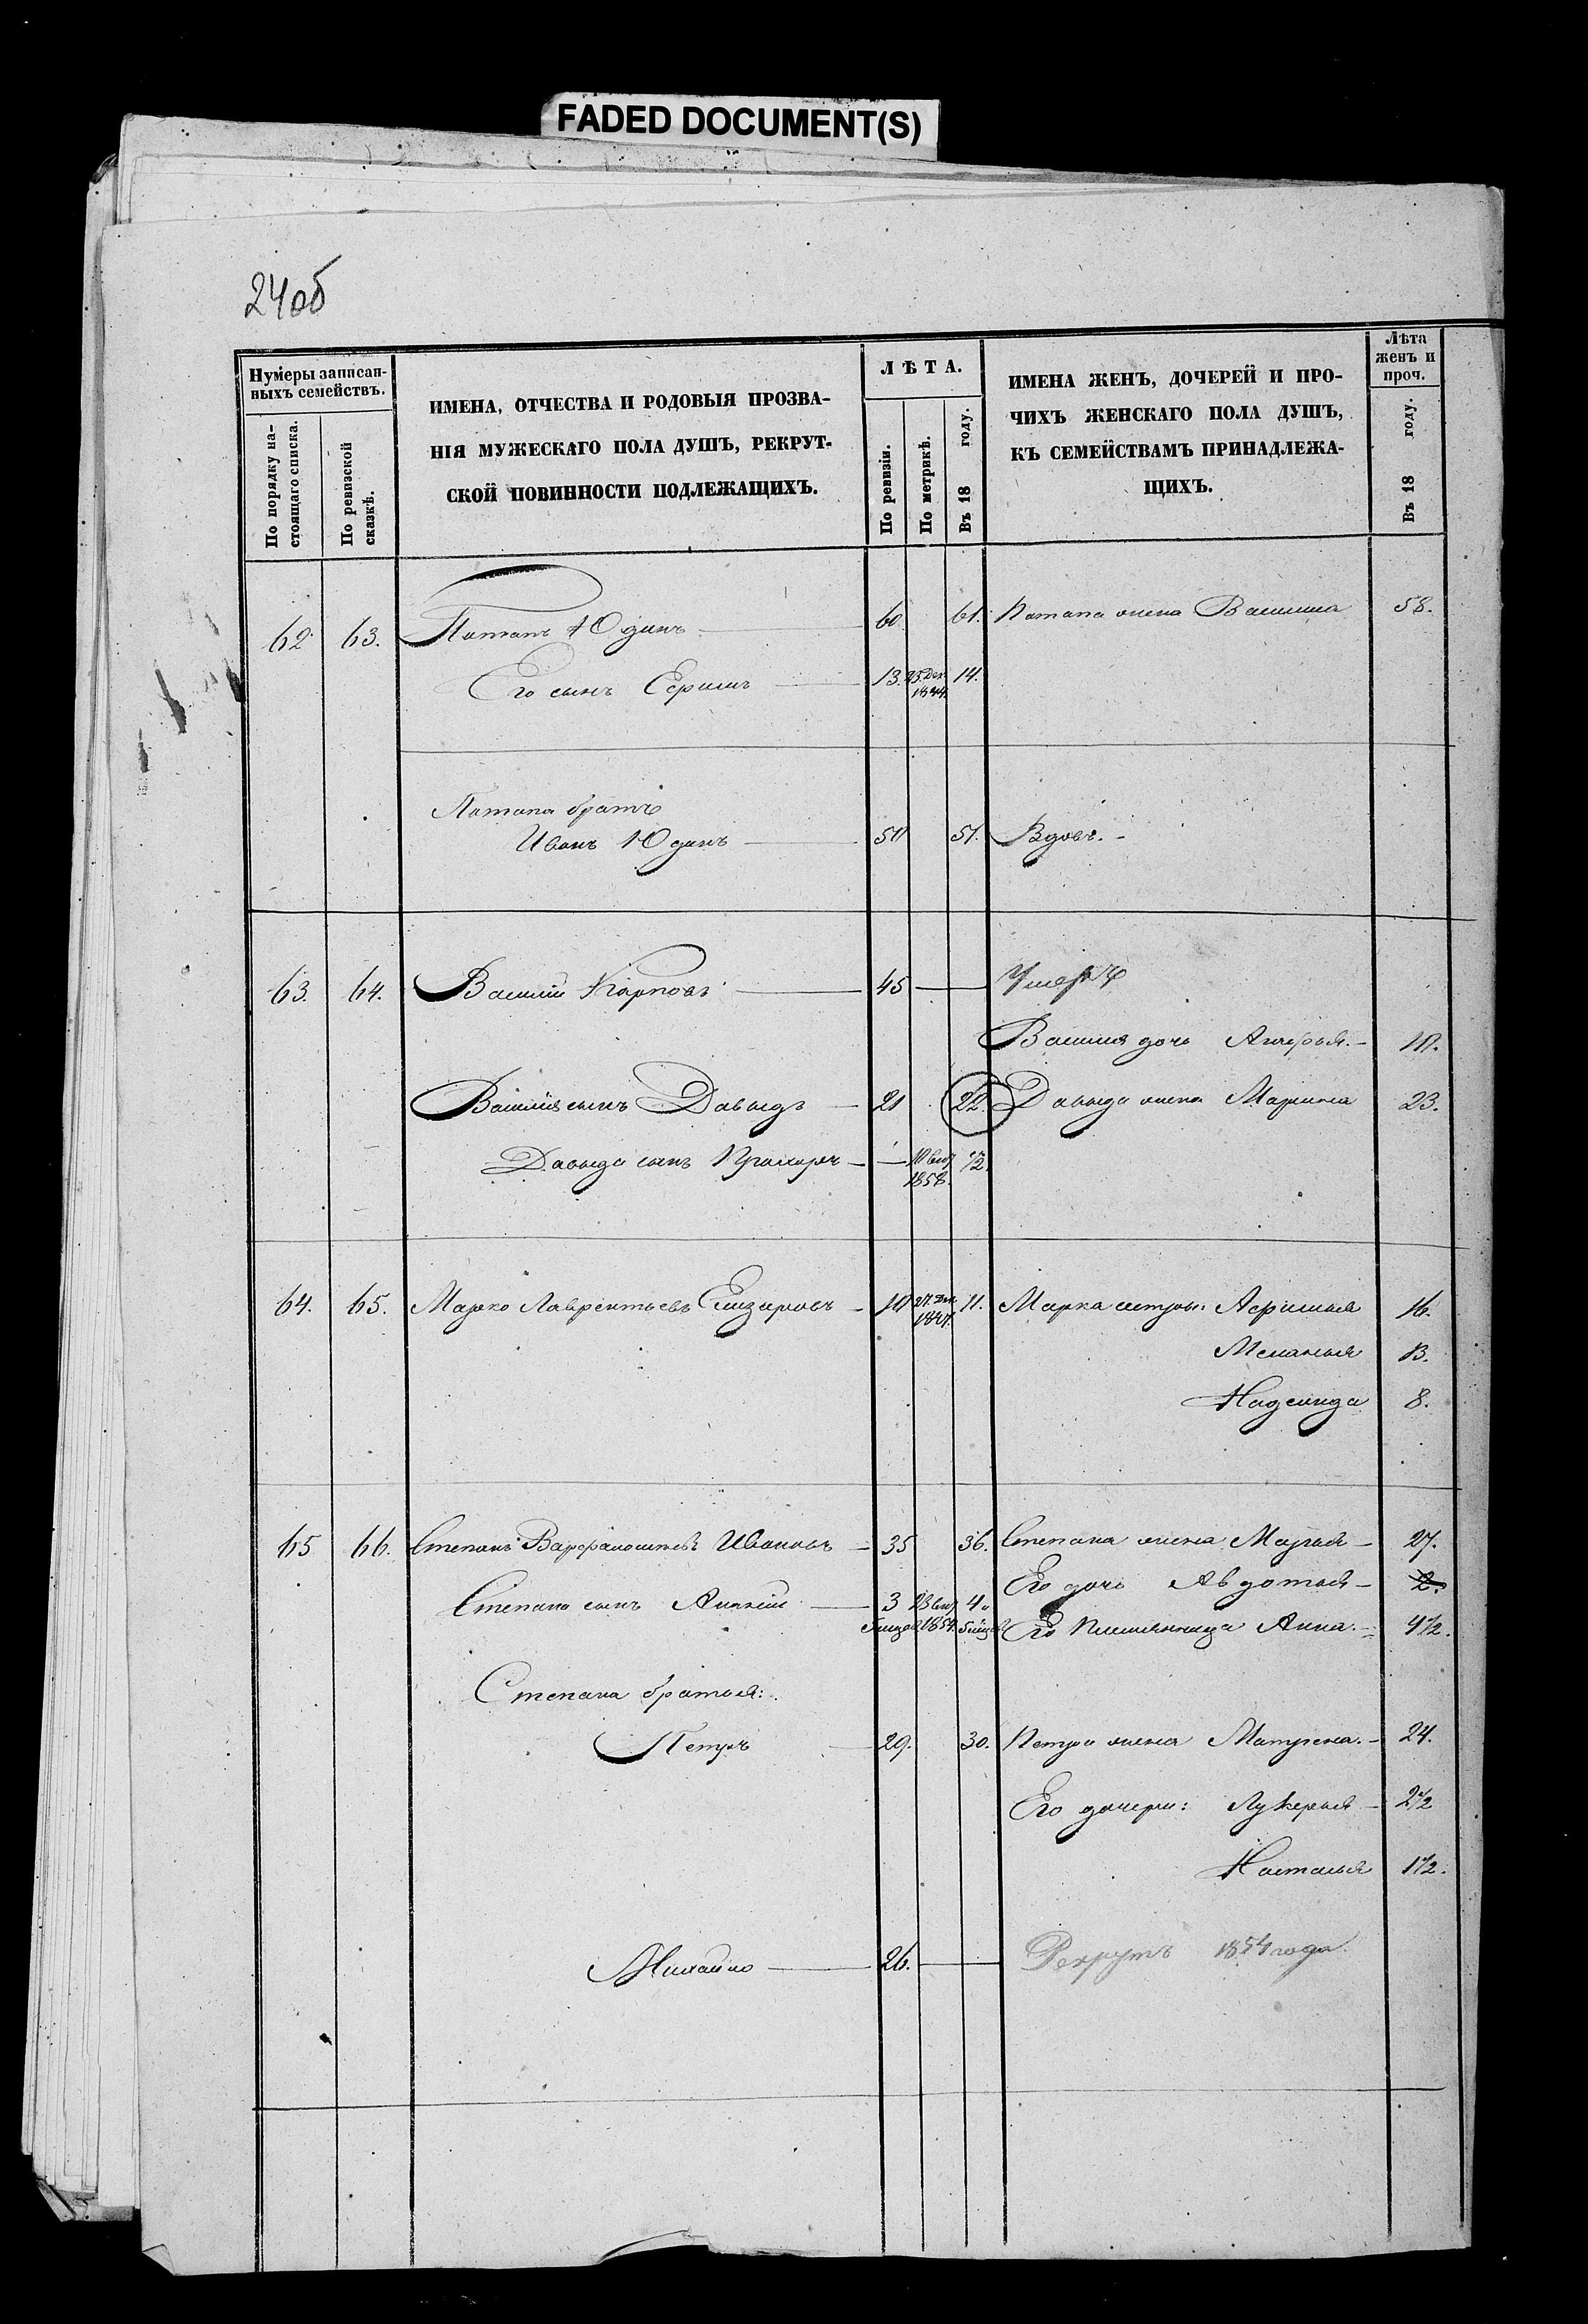 FADED DOCUMENT(S)
24об
Нумеры записан-
ныхъ семействъ.
По порядку на-
стоящаго списка.
По ревизской
сказкѣ.
ИМЕНА, ОТЧЕСТВА И РОДОВЫЯ ПРОЗВА-
НІЯ МУЖЕСКАГО ПОЛА ДУШЪ, РЕКРУТ-
СКОЙ ПОВИННОСТИ ПОДЛЕЖАЩИХЪ.
ЛѢТА.
По ревизіи.
По метрикѣ.
Въ 18 году.
ИМЕНА ЖЕНЪ, ДОЧЕРЕЙ И ПРО-
ЧИХЪ ЖЕНСКАГО ПОЛА ДУШЪ,
КЪ СЕМЕЙСТВАМЪ ПРИНАДЛЕЖА-
ЩИХЪ.
Лѣта
женъ и
проч.
Въ 18 году.
62 63. Потапъ Юдинъ 60 61. Потапа жена 58.
Его сынъ Ефимъ 13. 25 Дек. 14.
1844.
Потапа братъ
Иванъ Юдинъ 50 51. Вдовъ.
63. 64. Василій Карповъ 45 Умеръ
Василія дочь 10.
Василія сынъ Давыдъ 21 22. Давыда жена Марина 23.
Давыда сынъ 1/2.
1858.
64. 65. Марко Лаврентьевъ Елизаровъ 10 27. Дек. 11. Марка сестры: Афимья 16.
1847.
Меланья 13.
Надежда 8.
65 66. Степанъ Варфаломеевъ Ивановъ 35 36. Степана жена Марья 27.
Его дочь Авдотья 2.
Степана сынъ Алексій 3 23 4
1854. Его племянница Анна. 4 1/2.
Степана братья:
Петръ 29. 30. Петра жена Матрена. 24.
Его дочери: Лукерья 2 1/2
Наталья 1 1/2.
Михайло 26. Рекрутъ 1854 года.